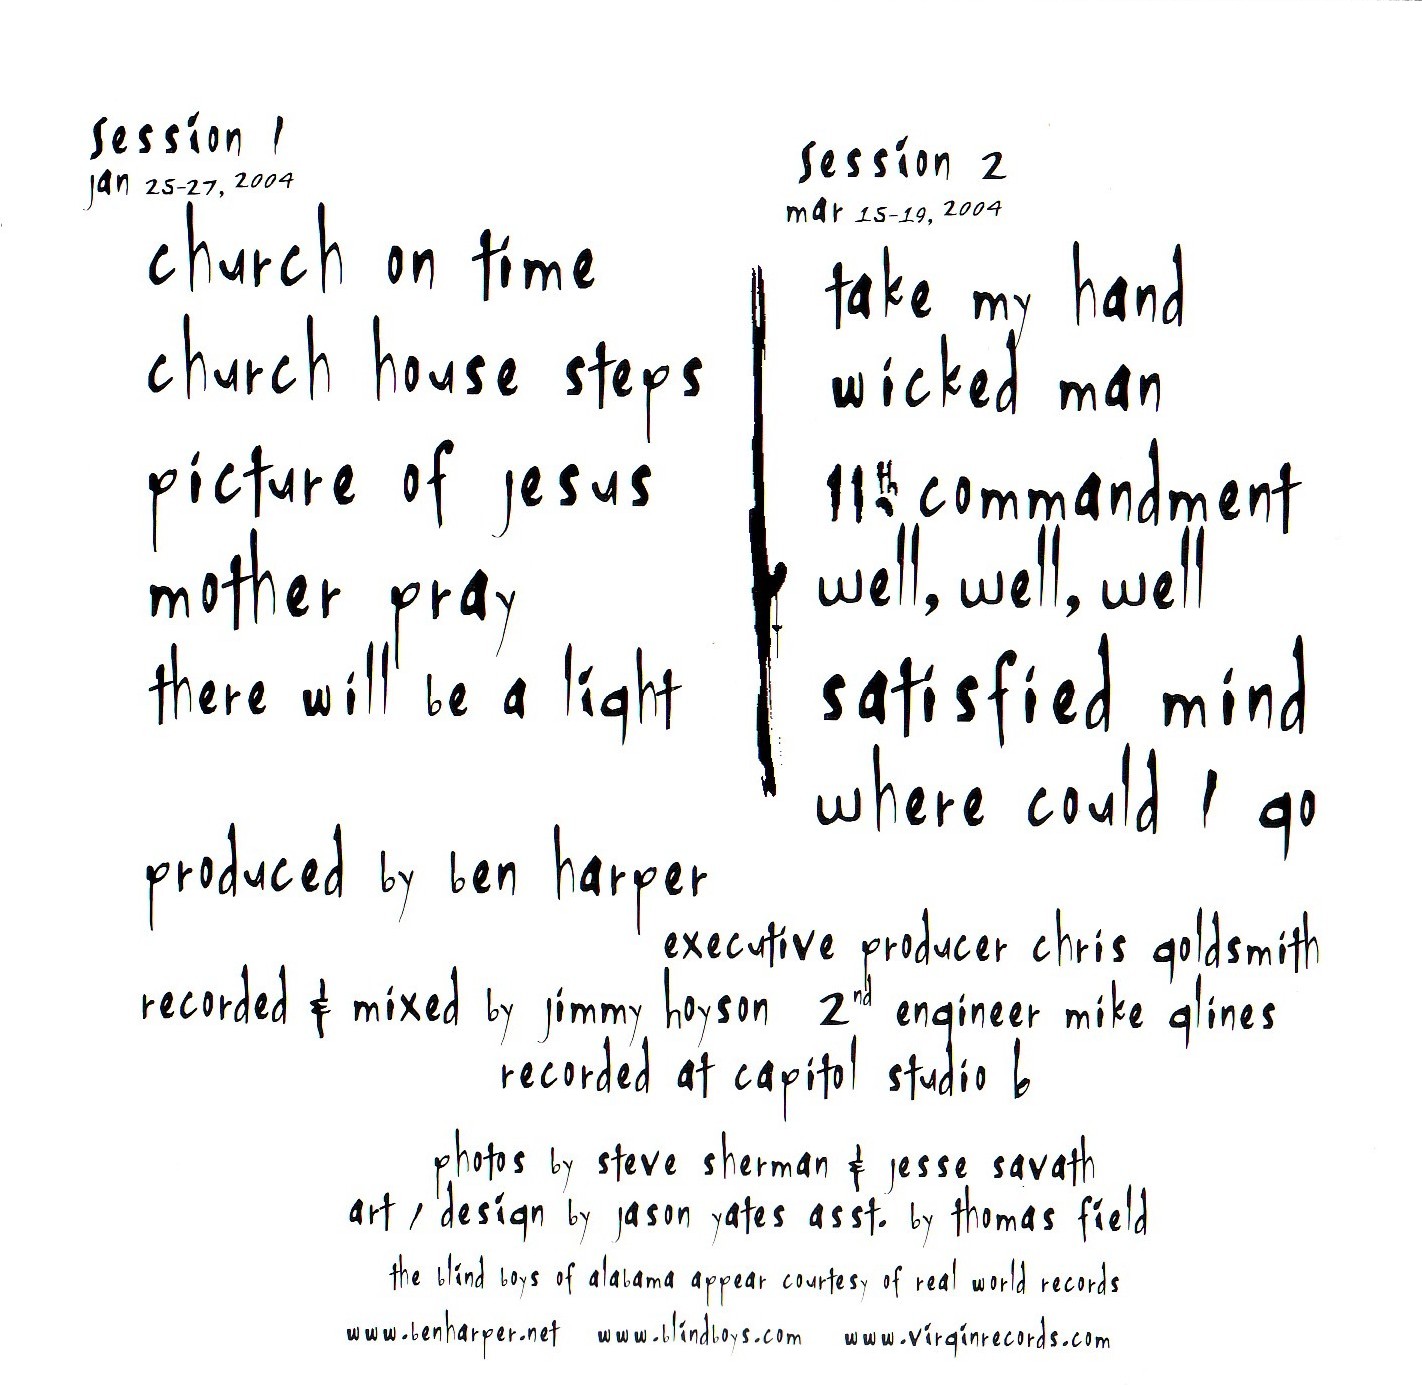 session 1
jan 25-27, 2004
church on time
church house steps
picture of jesus
mother pray
there will be a light
session 2
mar 15-19, 2004
take my hand
wicked man
11th commandment
well, well, well
satisfied mind
where could I go
produced by ben harper
executive producer chris goldsmith
recorded & mixed by jimmy hoyson 2nd engineer mike glines
recorded at capitol studio b
photos by steve sherman & jesse savath
art / design by jason yates asst. by thomas field
the blind boys of alabama appear courtesy of real world records
www.benharper.net www.blindboys.com www.virginrecords.com